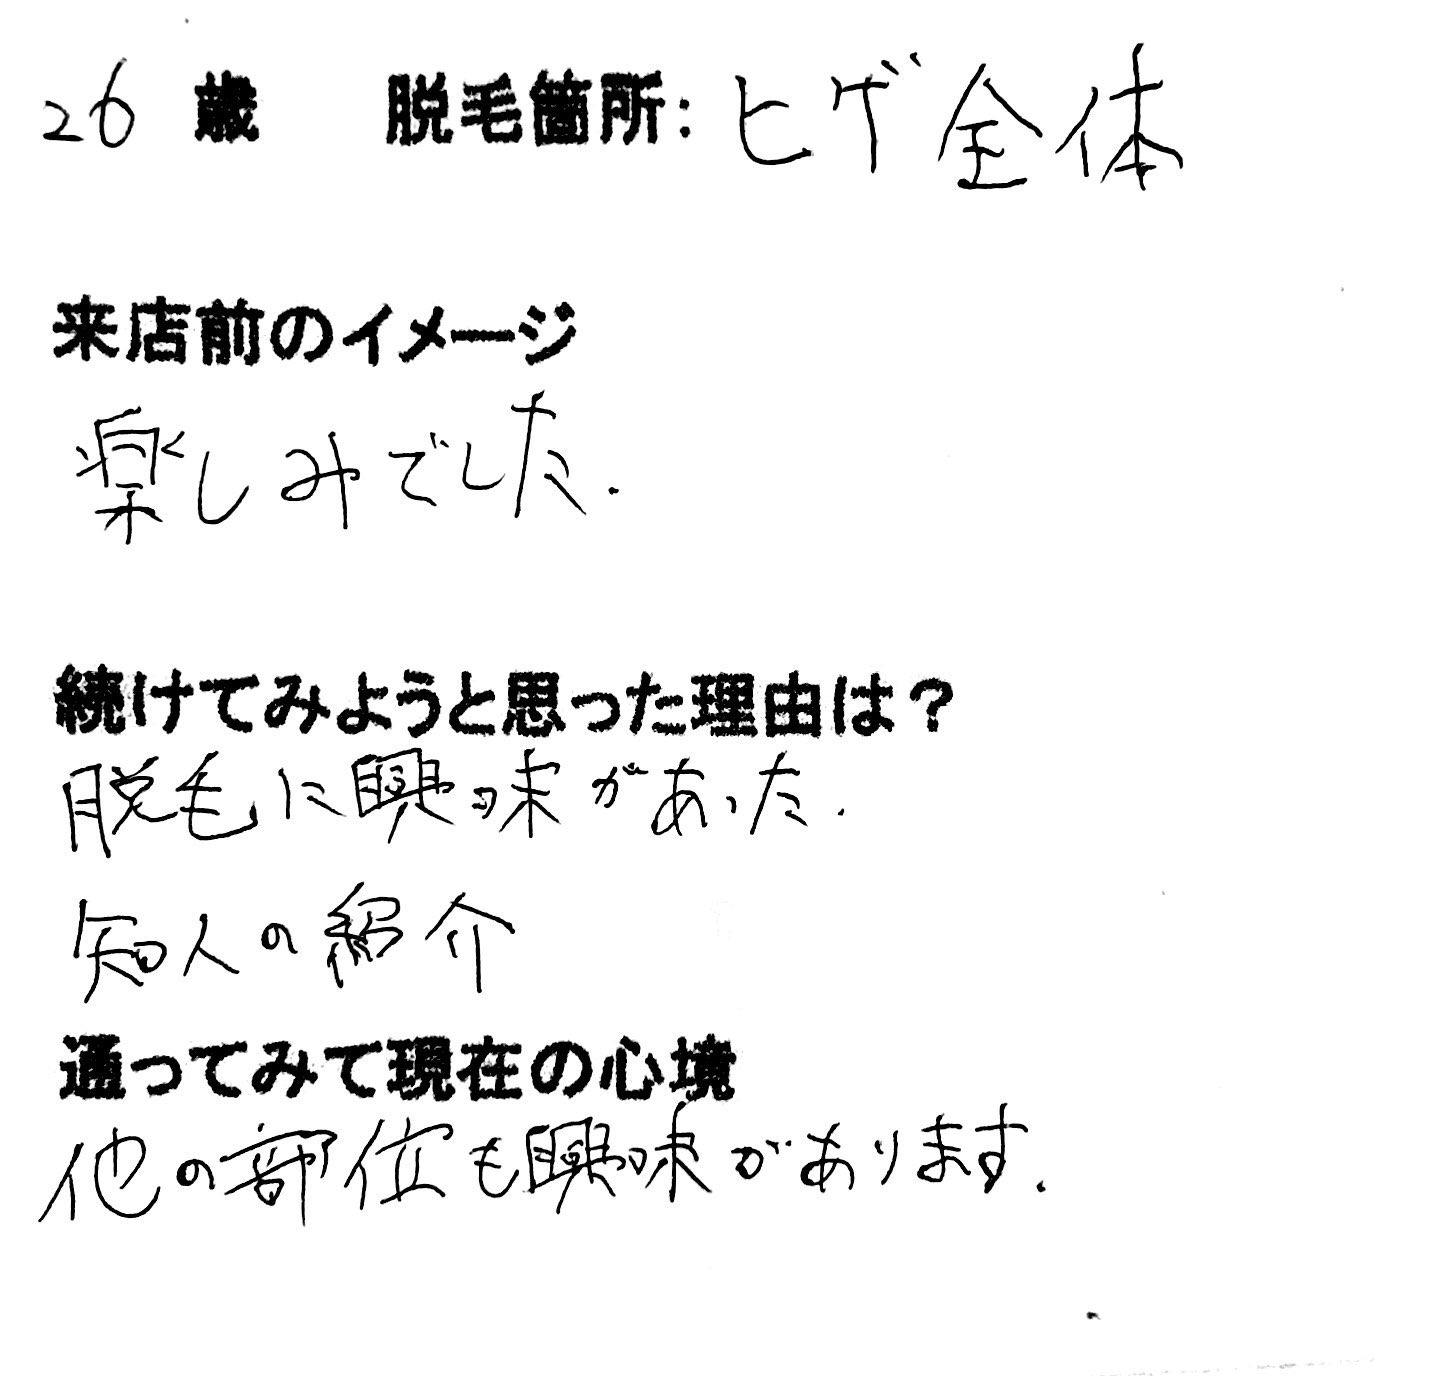 26 歳 脱毛箇所: ヒゲ全体
来店前のイメージ
楽しみでした.
続けてみようと思った理由は？
脱毛に興味があった.
知人の紹介
通ってみて現在の心境
他の部位も興味があります.